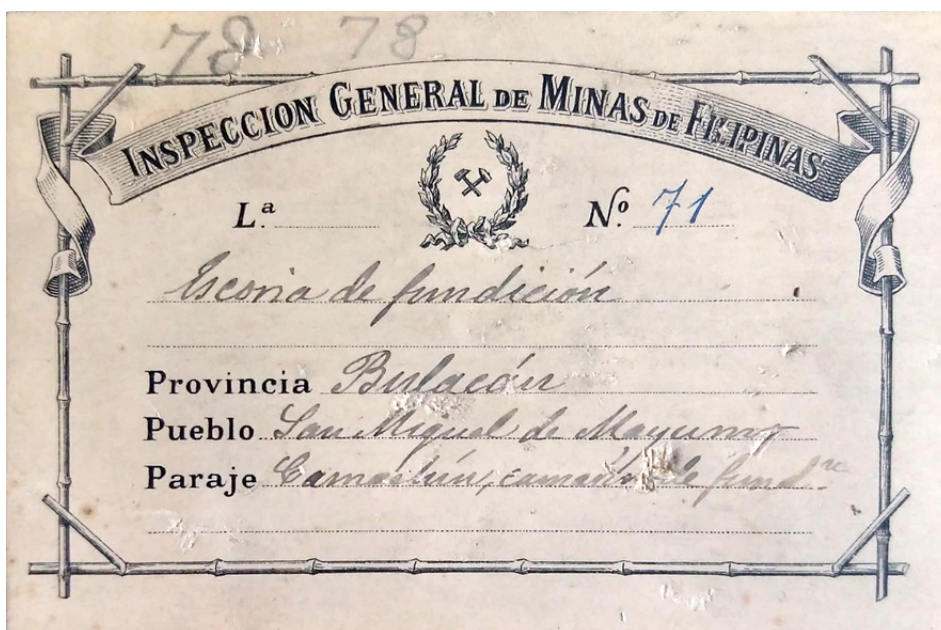 78 78
INSPECCION GENERAL DE MINAS DE FILIPINAS
L.ª Nº 71
Escoria de fundición
Provincia Bulacán
Pueblo San Miguel de Mayumo
Paraje Camachin, camarín de fund.ⁿ